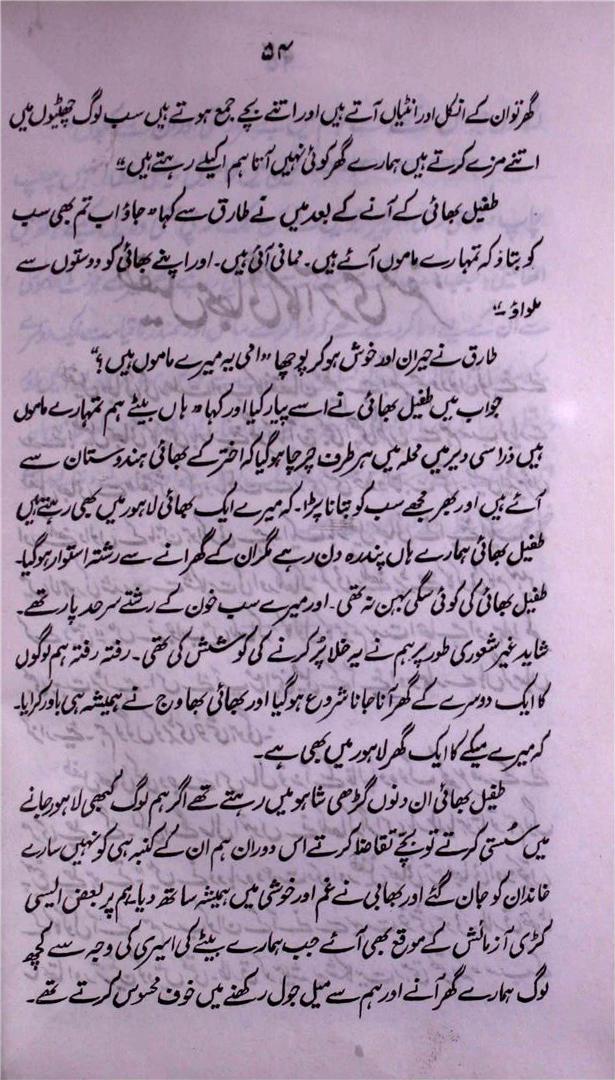 ۵۴
گھر تو ان کے انکل اور انٹیاں آتے ہیں اور اتنے بچے جمع ہوتے ہیں سب لوگ چھٹیوں میں
اتنے مزے کرتے ہیں ہمارے گھر کوئی نہیں آتا ہم اکیلے رہتے ہیں"
طفیل بھائی کے آنے کے بعد میں نے طارق سے کہا "جاؤ اب تم بھی سب
کو بتاؤ کہ تمہارے ماموں آئے ہیں۔ ممانی آئی ہیں۔ اور اپنے بھائی کو دوستوں سے
ملواؤ۔"
طارق نے حیران اور خوش ہو کر پوچھا "امی یہ میرے ماموں ہیں؟"
جواب میں طفیل بھائی نے اسے پیار کیا اور کہا "ہاں بیٹے ہم تمہارے ماموں
ہیں ذرا سی دیر میں محلہ میں ہر طرف چرچا ہو گیا کہ اختر کے بھائی ہندوستان سے
آئے ہیں اور پھر مجھے سب کو بتانا پڑا۔ کہ میرے ایک بھائی لاہور میں بھی رہتے ہیں
طفیل بھائی ہمارے ہاں پندرہ دن رہے مگر ان کے گھرانے سے رشتہ استوار ہو گیا۔
طفیل بھائی کی کوئی سگی بہن نہ تھی۔ اور میرے سب خون کے رشتے سرحد پار تھے۔
شاید غیر شعوری طور پر ہم نے یہ خلا پُر کرنے کی کوشش کی تھی۔ رفتہ رفتہ ہم لوگوں
کا ایک دوسرے کے گھر آنا جانا شروع ہو گیا اور بھائی بھاوج نے ہمیشہ ہی باور کرایا۔
کہ میرے میکے کا ایک گھر لاہور میں بھی ہے۔
طفیل بھائی ان دنوں گڑھی شاہو میں رہتے تھے اگر ہم لوگ کبھی لاہور جانے
میں سُستی کرتے تو بچے تقاضا کرتے اس دوران ہم ان کے کنبہ ہی کو نہیں سارے
خاندان کو جان گئے اور بھابی نے غم اور خوشی میں ہمیشہ ساتھ دیا۔ ہم پر بعض ایسی
کڑی آزمائش کے موقع بھی آئے جب ہمارے بیٹے کی اسیری کی وجہ سے کچھ
لوگ ہمارے گھر آنے اور ہم سے میل جول رکھنے میں خوف محسوس کرتے تھے۔